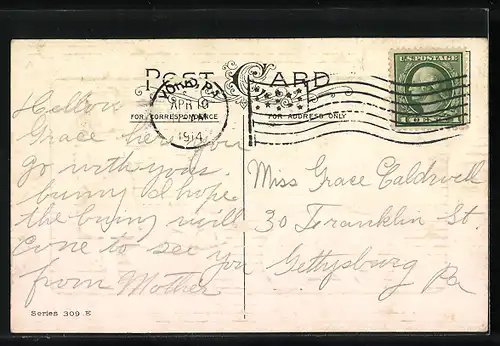 POST CARD
YORK, PA.
APR 10
1914
U.S. POSTAGE
FOR CORRESPONDENCE
FOR ADDRESS ONLY
Hellow
Grace here you
go with your
bunny I hope
the buny will
Come to see you
from Mother
Miss Grace Caldwell
30 Franklin St.
Gettysburg
Pa
Series 309 E